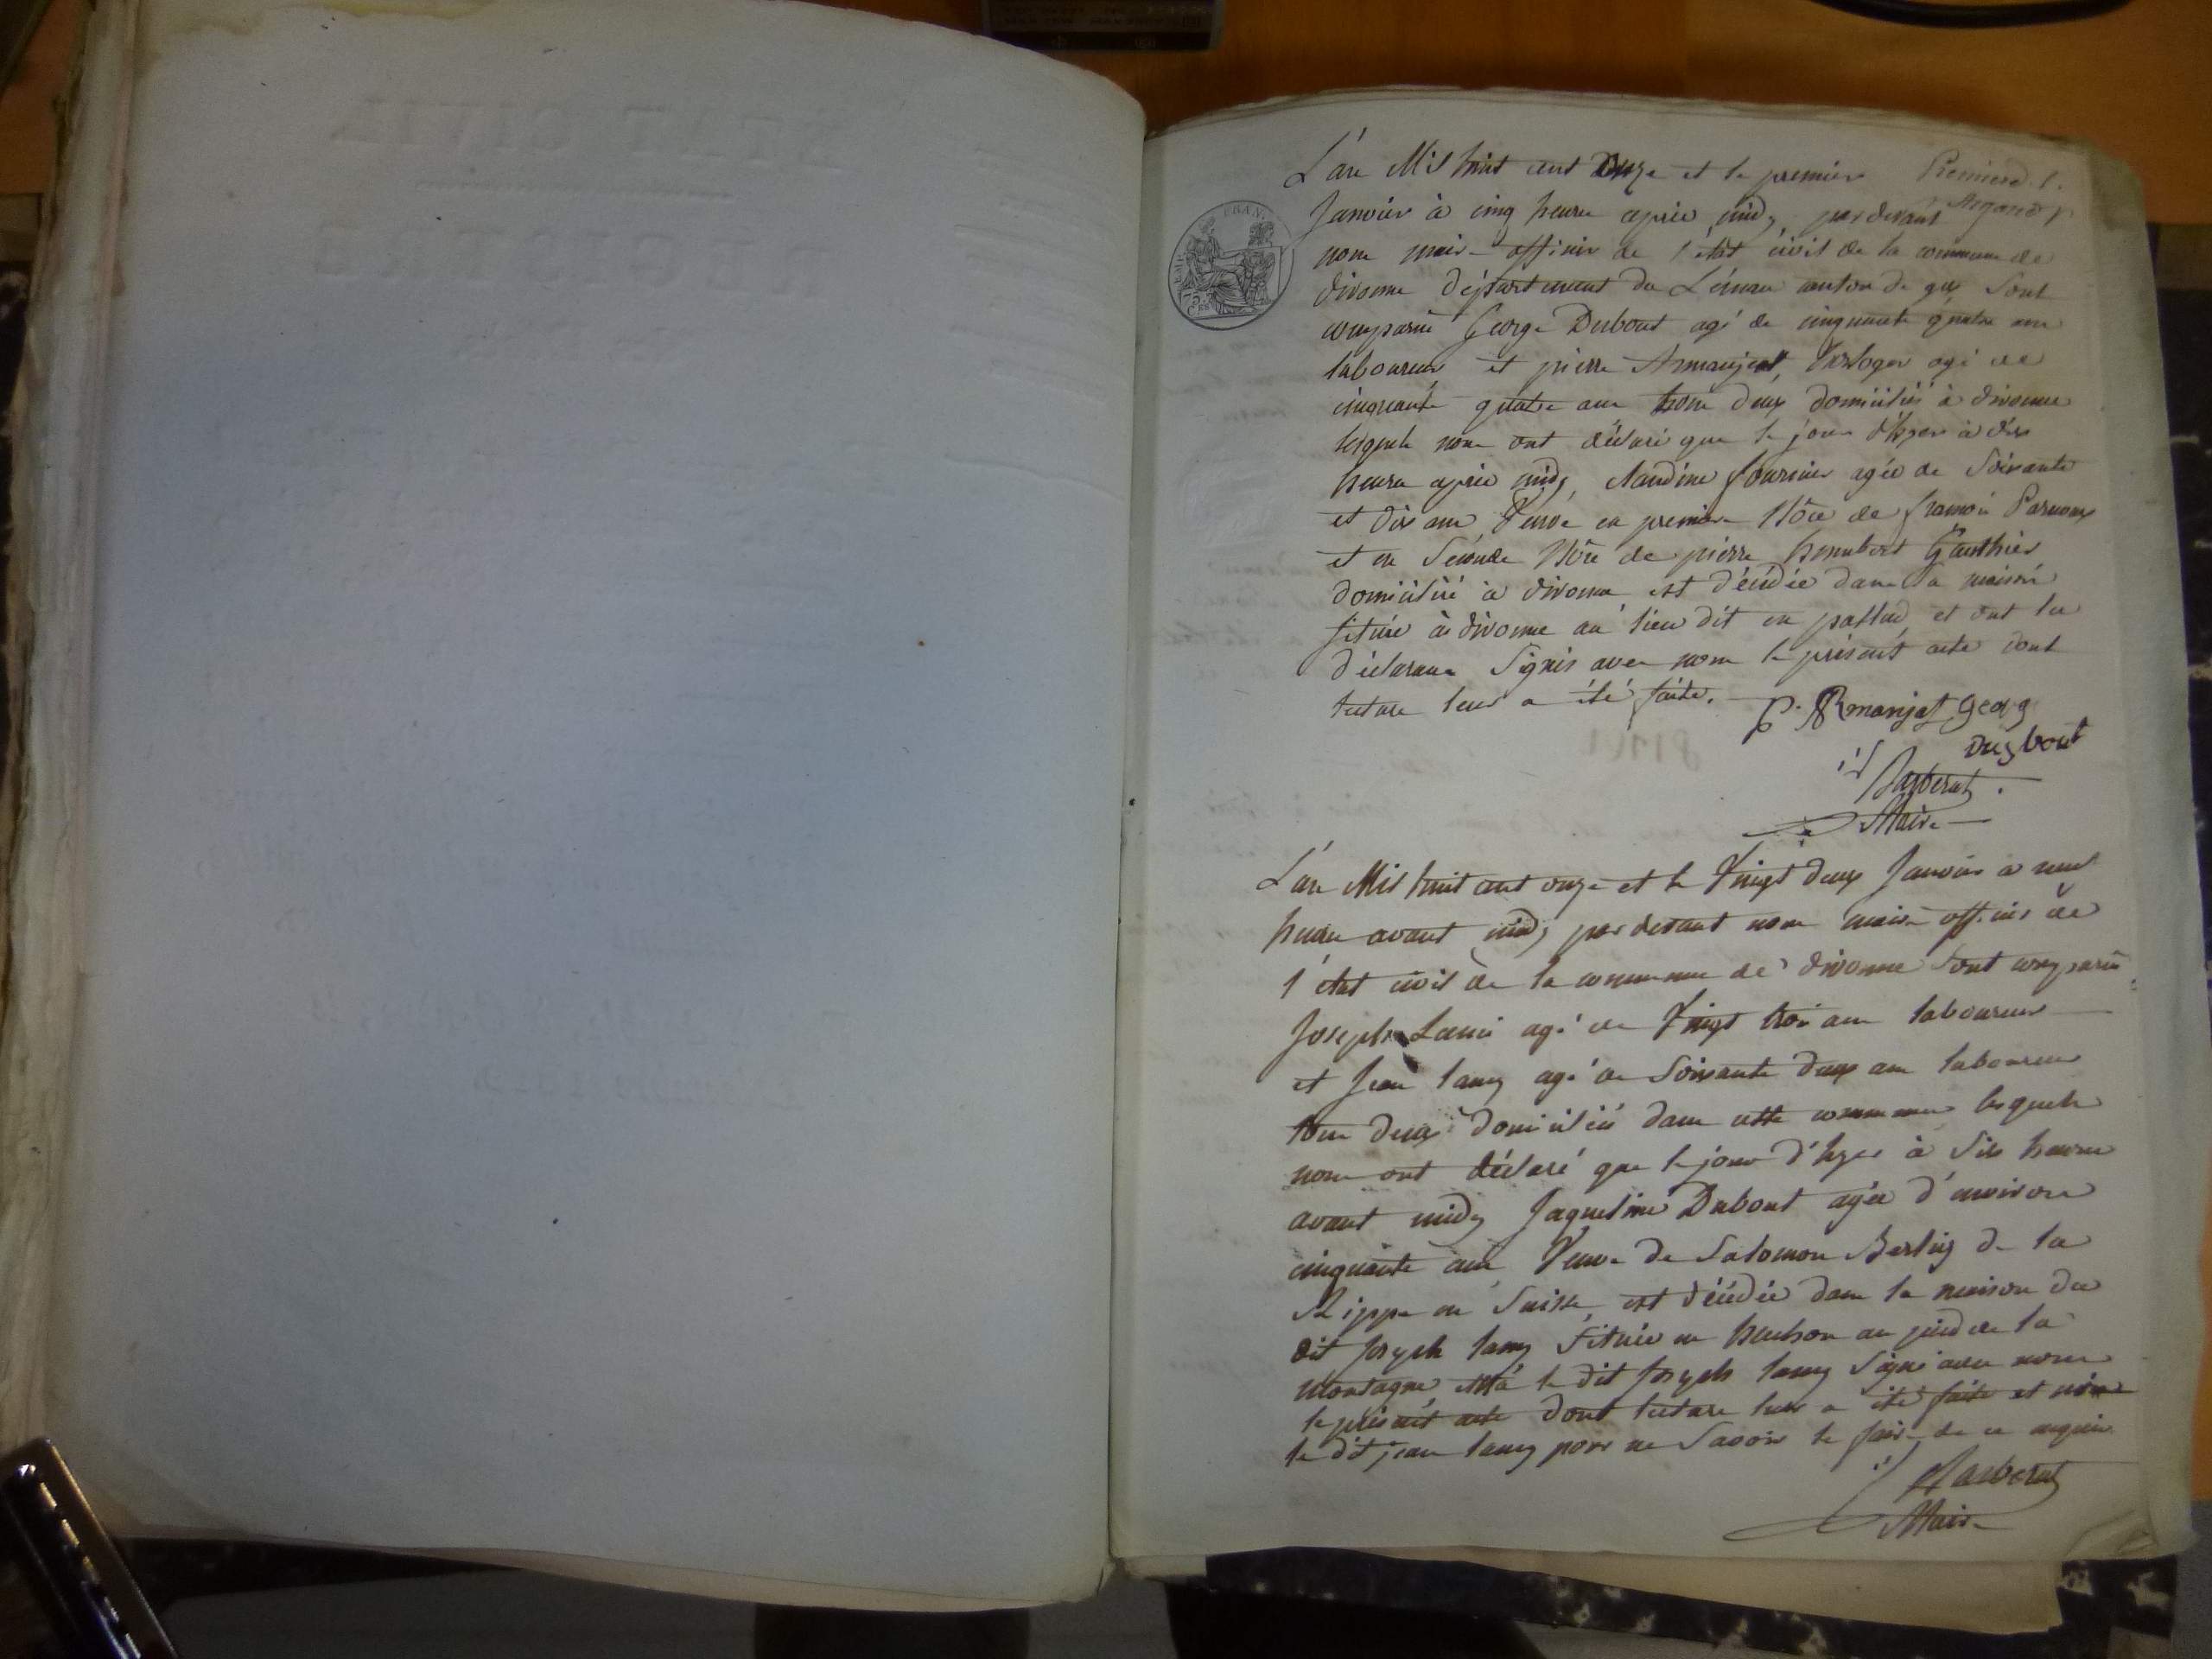 L'an Mil huit cent onze et le premier
Premiere f.
Janvier à cinq heure aprés midy pardevant
nous maire officier de l'état civil de la commune de
divonne département du Léman canton de gex Sont
comparus George Dubout agé de cinquante quatre ans
laboureur et pierre Armanjat horloger agé de
cinquante quatre ans tous deux domiciliés à divonne
lesquels nous ont déclaré que le jour d'hyer à dix
heures aprés midy, claudine fournier agée de Soixante
et dix ans Veuve en premiere Nôce de françois
et en Seconde Nôce de pierre humbert Gauthier
domicilié à divonne est décédée dans Sa maison
située à divonne au lieu dit en pallud et ont les
déclarans Signés avec nous le présent acte dont
lecture leur a été faite.
P. Armanjat Georg
Dugbout
Maire
L'an Mil huit cent onze et le Vingt deux Janvier à neuf
heures avant midy pardevant nous maire officier de
l'état civil de la commune de divonne Sont comparus
Joseph Lami agé de Vingt trois ans laboureur
et Jean lamy agé de Soixante deux ans laboureur
tous deux domiciliés dans cette commune lesquels
nous ont déclaré que le jour d'hyer à Six heures
avant midy Jaqueline Dubout agée d'environ
cinquante ans Veuve de Salomon de la
Rippe en Suisse est décédée dans la maison du
dit Joseph lamy Située en au pied de la
montagne, et à le dit Joseph lamy Signé avec nous
le présent acte dont lecture leur a été faite et non
le dit jean lamy pour ne Savoir le faire de ce requis
Maire